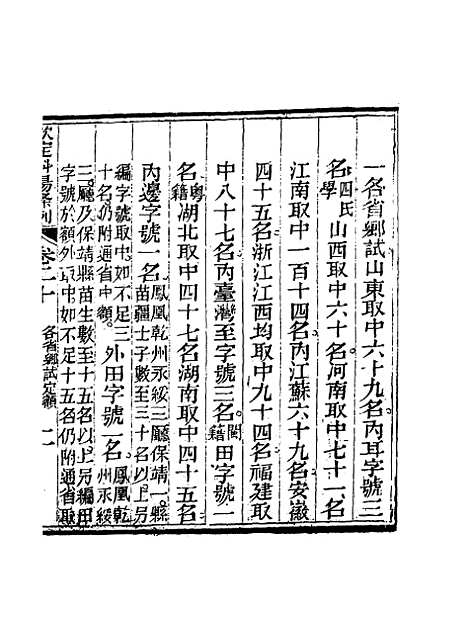 一各省鄉試山東取中六十九名內耳字號三
名四氏學山西取中六十名河南取中七十一名
江南取中一百十四名內江蘇六十九名安徽
四十五名浙江江西均取中九十四名福建取
中八十七名內臺灣至字號三名閩籍田字號一
名粵籍湖北取中四十七名湖南取中四十五名
內邊字號一名鳳凰乾州永綏三廳保靖一縣苗疆士子數至三十名以上另
編字號取中如不足三十名仍附通省中額外田字號一名鳳凰乾州永綏
三廳及保靖縣苗生數至十五名以上另編田
字號於額外取中如不足十五名仍附通省取
欽定科場條例 卷二十 各省鄉試定額 二